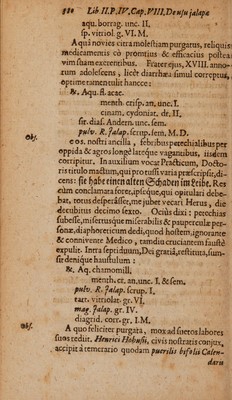 580 Lib II.P.IV.Cap.VIII. De usu jalapæ
aqu. borrag. unc. II.
sp. vitriol. g. VI. M.
A qui novies citra molestiam purgatus, reliquis
medicamentis cò promtius & efficacius postea
vim suam exerentibus. Frater ejus, XVIII. anno-
rum adolescens, licèt diarrhœa simul correptus,
oportet tamen tulit hancce:
℞. Aqu. fl. acac.
menth. crisp. an. unc. I.
cinam. cydoniat. dr. II.
sir. diaf. Andern. unc. sem.
pulv. R. Jalap. scrup. sem. M. D.
Obs. eos. nostri ancilla, febribus petechialibus per
oppida & agros longè latèque vagantibus, iisdem
corripitur. In auxilium vocat Practicum, Docto-
ris titulo mactum, qui pro tussi varia præscripsit, di-
cens: sie habe einen alten Schaden im Leibe. Res
cùm conclamata fore, ipsique, qui opitulari debe-
bat, totus desperasset, me jubet vocari Herus, die
decubitus decimo sexto. Ocius duxi: petechias
subesse, miserrusque miserabilis & pauperculæ per-
sonæ, diaphoreticum dedi, quod hostem, ignorante
& connivente Medico, tamdiu cruciantem faustè
expulit. Intra septiduum, Dei gratiâ, restituta, sum-
sit denique haustulum:
℞. Aq. chamomill.
menth. cr. an. unc. I. & sem.
pulv. R. Jalap. scrup. I.
tart. vitriolat. gr. VI.
mag. Jalap. gr. IV.
diagrid. corr. gr. I. M.
Obs. A quo feliciter purgata, mox ad suetos labores
suos rediit. Henrici Hobusii, civis nostratis conjux,
accipit à temerario quodam puerilis bifolii Calen-
dario